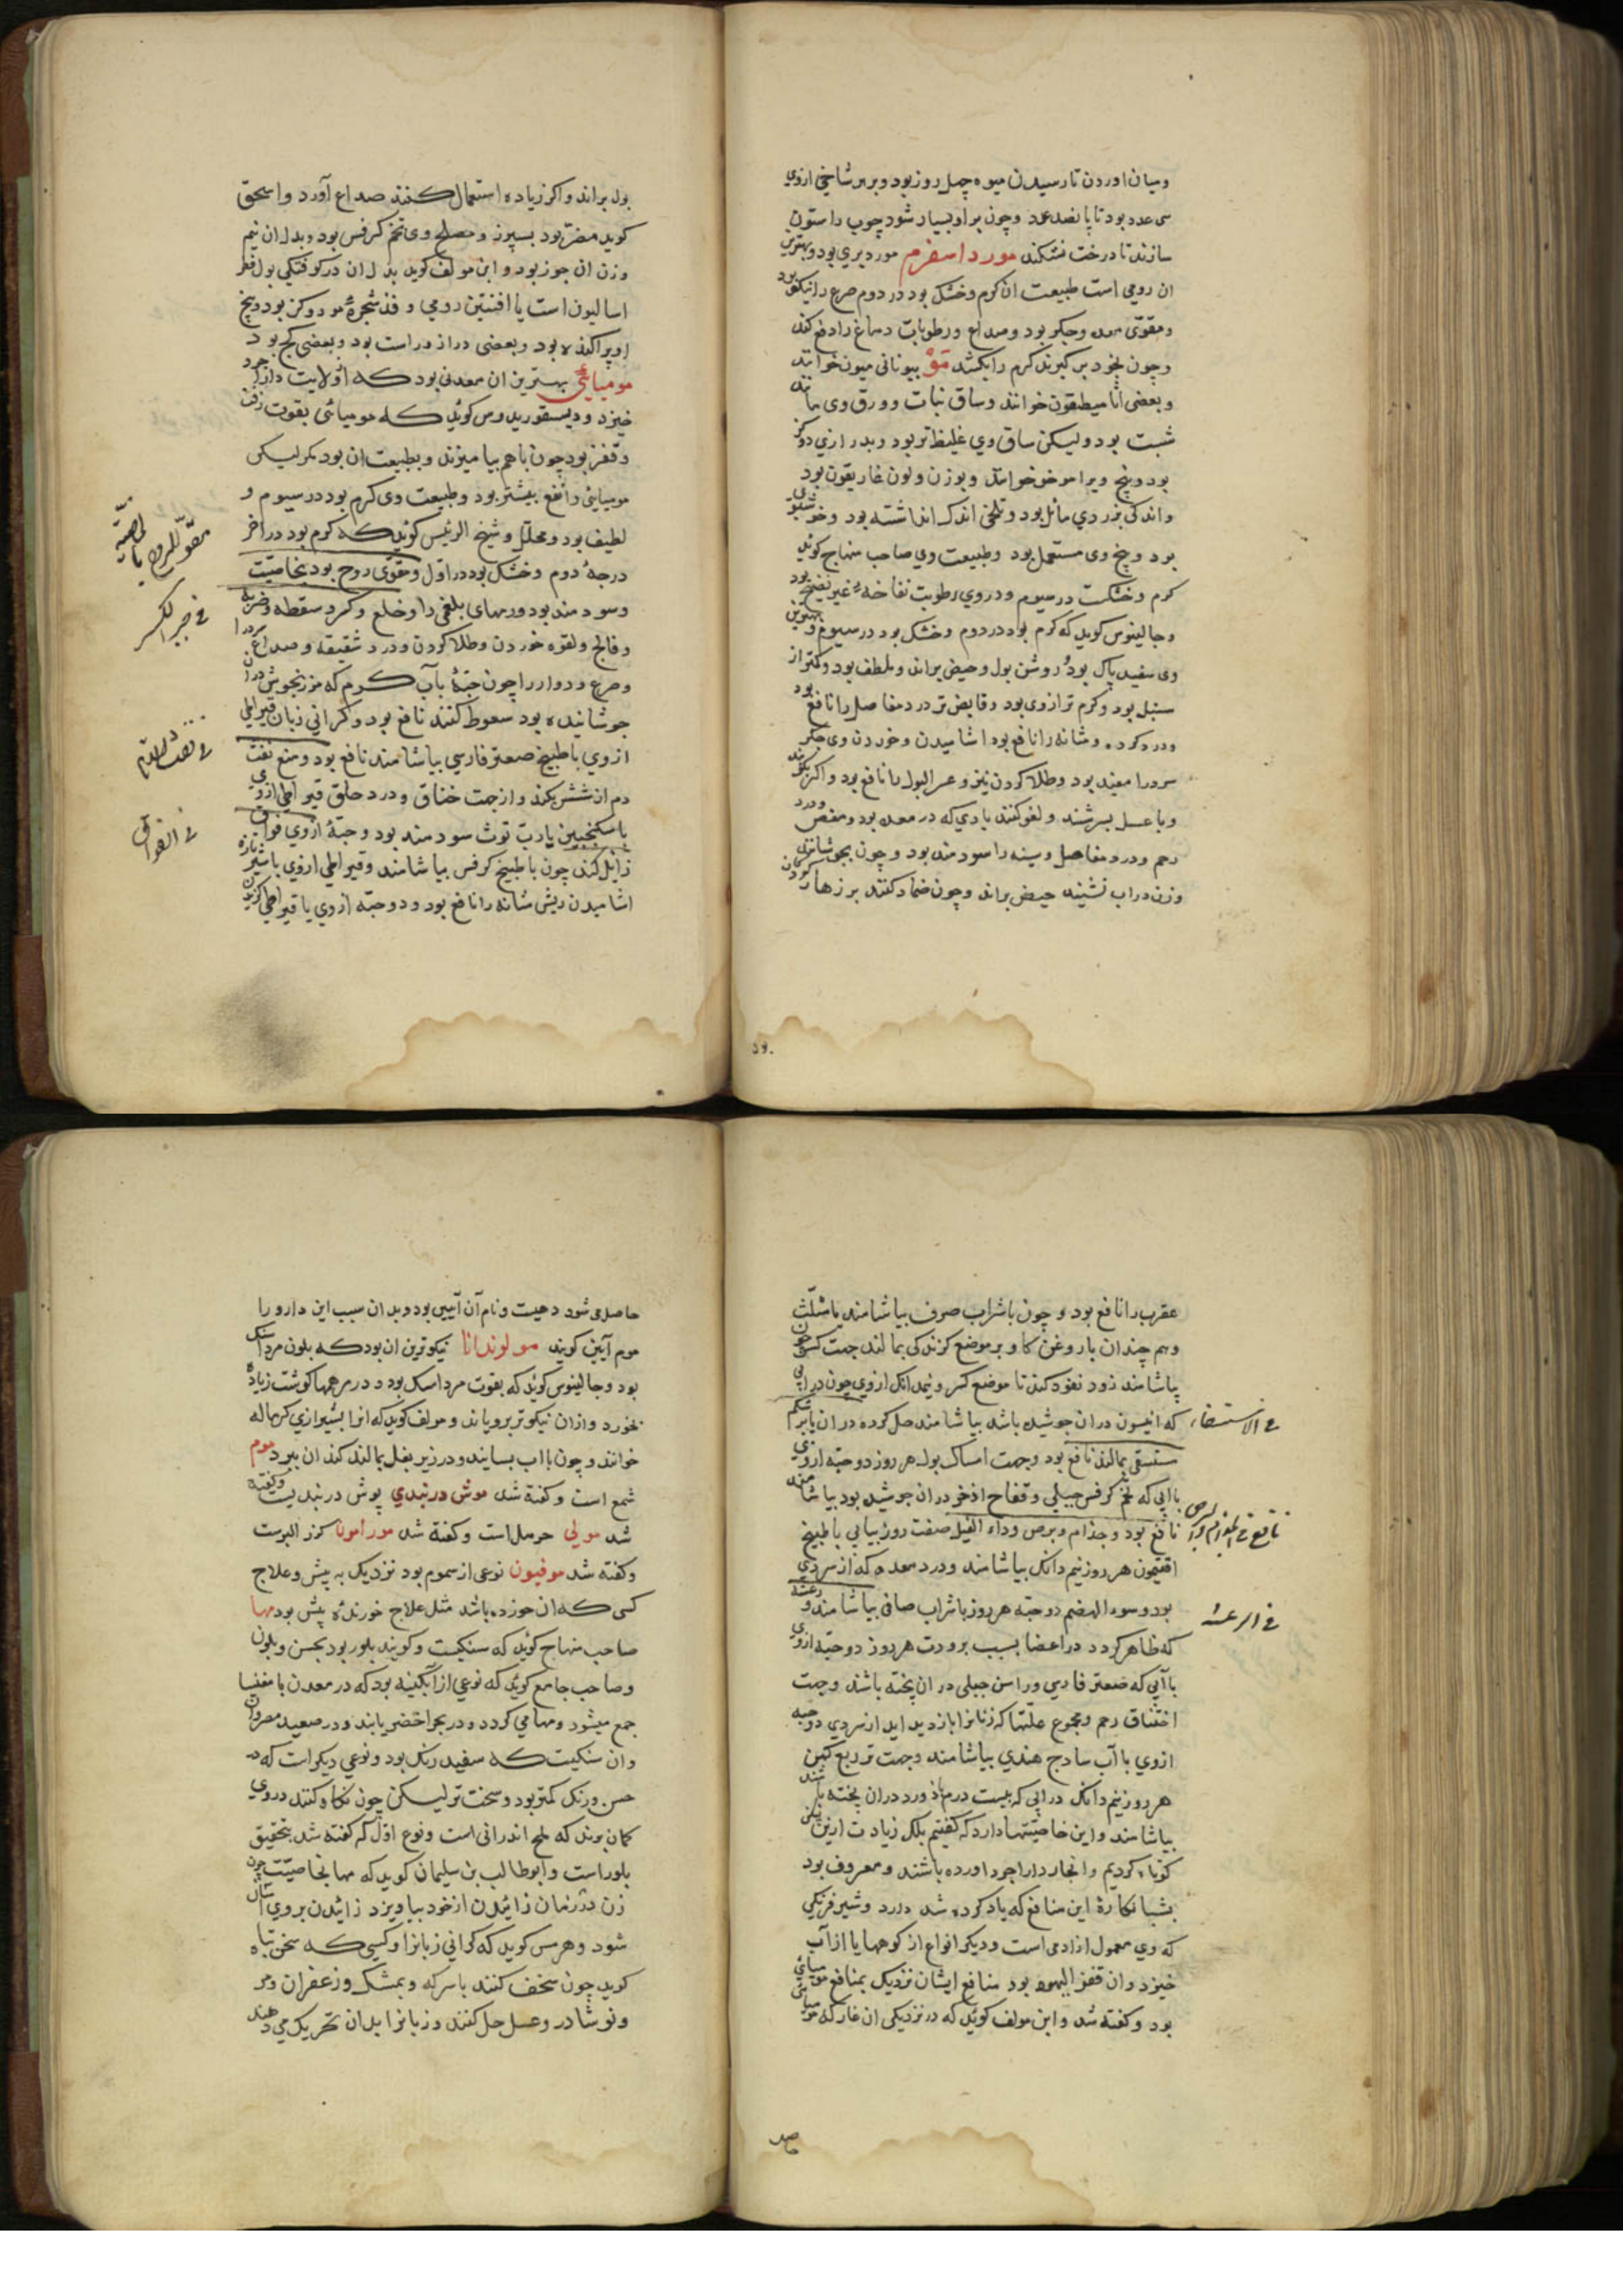 ومیان اوردن تا رسیدن میوه چهل روز بود و بر هر شاخی ازوی
سی عدد بود تا پانصد عدد وچون بر او بسیار شود چوب راستون
سازند تا درخت نشکند مورد اسفرم مورد بری بود و بهترین
ان رومی است طبیعت ان کرم وخشک بود در دوم صرع را نیکو بود
ومقوی معده وجکر بود وصداع ورطوبات دماغ را دفع کند
وچون بخود بر کیرند کرم را بکشد مَوْ بیونانی میون خوانند
وبعضی انا میطیقون خوانند وساق نبات وورق وی مانند
شبت بود ولیکن ساق وی غلیظ تر بود وبدرازی دو کز
بود وبیخ ویرا مو خو خوانند وبوزن ولون غاریقون بود
واندکی بزردی مائل بود وتلخی اندک انداشته بود وخوشبوی
بود وبیخ وی مستعمل بود وطبیعت وی صاحب منهاج کوید
کرم وخشکست در سیوم ودروی رطوبت نفاخه غیر نضیج بود
وجالینوس کوید که کرم بود در دوم وخشک بود در سیوم و بهترین
وی سفید پاک بود روشن بول وحیض براند وملطف بود وکمتر از
سنبل بود وکرم تر ازوی بود وقابض تر درد مفاصل را نافع بود
ودرد کرده ومثانه را نافع بود اشامیدن وخوردن وی جکر
سرد را مفید بود وطلا کردن نیز وعسر البول را نافع بود واکر بکوبند
وبا عسل بسرشند ولعوق کنند بادی که در معده بود ومغص و درد
رحم ودرد مفاصل وسینه را سودمند بود وچون بجوشانند
وزن دراب نشیند حیض براند وچون ضماد کنند بر زهار کودکان
بول براند واکر زیاده استعمال کنند صداع آورد واسحق
کوید مضر بود بسپرز ومصلح وی تخم کرفس بود وبدل ان نیم
وزن ان جوز بود وابن مولف کوید بدل ان در کوفتکی بول فطر
اسالیون است یا افسنتین رومی وقد شجرهٔ مو دو کز بود وبیخ
او پراکنده بود وبعضی دراز وراست بود وبعضی کج بود
مومیائی بهترین ان معدنی بود که از ولایت دارابجرد
خیزد ودیسقوریدوس کوید که مومیائی بقوت زفت
وقفر بود چون باهم بیامیزند وبطبیعت ان بود مکر لیکن
مومیایی را نفع بیشتر بود وطبیعت وی کرم بود در سیوم و
لطیف بود ومحلل وشیخ الرئیس کوید که کرم بود در اخر
درجهٔ دوم وخشک بود در اول ومقوی روح بود بخاصیت
وسودمند بود ورمهای بلغمی را وخلع وکسر وسقطه وضربه
وفالج ولقوه خوردن وطلا کردن ودرد شقیقه وصداع سرد را
وصرع ودوار را چون حبهٔ بآب کرم که مرزنجوش دران
جوشانیده بود سعوط کنند نافع بود وکرانی زبان قیراطی
ازوی با طبیخ صعتر فارسی بیاشامند نافع بود ومنع نفث
دم از شش بکند واز جهت خناق ودرد حلق قیراطی ازوی
با سکنجبین یا رب توث سودمند بود وحبهٔ ازوی فواق
زایل کند چون با طبیخ کرفس بیاشامند وقیراطی ازوی با شیر تازه
اشامیدن ریش مثانه را نافع بود ودو حبه ازوی یا قیراطی کزیدن
مقوّی للروح بالخاصیة
فی جبر الکسر
فی نفث الدم
فی الفواق
عقرب را نافع بود وچون با شراب صرف بیاشامند یا مثلّث
وهم چندان با روغن کاو بر موضع کزندکی بمالند جهت کسر چون
بیاشامند زود نفوذ کند تا موضع کسر ونیمدانک ازوی چون درابی
که انیسون دران جوشیده باشد بیاشامند حل کرده دران یا بر شکم
مستسقی بمالند نافع بود وجهت امساک بول هر روز دو حبه ازوی
باابی که تخم کرفس جبلی وفقاح اذخر دران جوشیده بود بیاشامند
نافع بود وجذام وبرص وداء الفیل هفت روز بیابی با طبیخ
افتیمون هر روز نیم دانک بیاشامند ودرد معده که از سردی
بود وسوء الهضم دو حبه هر روز با شراب صافی بیاشامند ورعشه
که ظاهر کردد در اعضا بسبب برودت هر روز دو حبه ازوی
باآبی که صعتر فارسی وراسن جبلی دران پخته باشند وجهت
اختناق رحم ومجموع علتها که زنانرا بازدید اید از سردی دو حبه
ازوی باآب سادج هندی بیاشامند وجهت تب ربع کهن
هر روز نیم دانک درابی که بیست درم باذ ورد دران پخته باشند
بیاشامند واین خاصیتها دارد که کفتیم بلکه زیادت ازین
کوتاه کردیم وانچه از دارابجرد اورده باشند ومعروف بود
بشبانکارهٔ این منافع که یاد کرده شد دارد وشیر فرنکی
که وی معمول از ادمی است ودیکر انواع از کوهها یا از آب
خیزد وان قفر الیهود بود منافع ایشان نزدیک بمنافع مومیایی
بود وکفته شد وابن مولف کوید که در نزدیکی ان غار که مومیایی
فی الاستسقاء
نافع فی الجذام والبرص
فی الرعشه
حاصل می شود دهیست ونام آن آبین بود وبدان سبب این دارو را
موم آبین کویند مولوندانا نیکوترین ان بود که بلون مرداسنک
بود وجالینوس کوید که بقوت مرداسنک بود ودر مرهمها کوشت زیاده
بخورد وازان نیکوتر برویاند ومولف کوید که انرا بشیرازی کرماله
خوانند وچون بااب بسایند ودر زیر بغل بمالند کند ان ببرد موم
شمع است وکفته شد موش دربندی پوش دربندیست وکفته
شد مولی حرمل است وکفته شد مورامونا کزر البرست
وکفته شد موفیون نوعی از سموم بود نزدیک به بیش وعلاج
کسی که ان خورده باشد مثل علاج خورندهٔ بیش بود مها
صاحب منهاج کوید که سنکیست وکویند بلور بود بحسن وبلون
وصاحب جامع کوید که نوعی از آبکینه بود که در معدن با مغنیسا
جمع میشود ومها می کردد ودر بحر اخضر یابند ودر صعید مصر وان
وان سنکیست که سفید رنک بود ونوعی دیکر است که در
حسن ورنک کمتر بود وسخت تر لیکن چون نکاه کنند دروی
کمان برند که ملح اندرانی است ونوع اول که کفته شد بتحقیق
بلور است وابوطالب بن سلیمان کوید که مها بخاصیت چون
زن در زمان زائیدن از خود بیاویزد زائیدن بروی آسان
شود وهرمس کوید که کرانی زبانرا وکسی که سخن تباه
کوید چون سحق کنند با سرکه وبمشک وزعفران ومر
ونوشادر وعسل حل کنند وزبانرا بدان تحریک می دهند